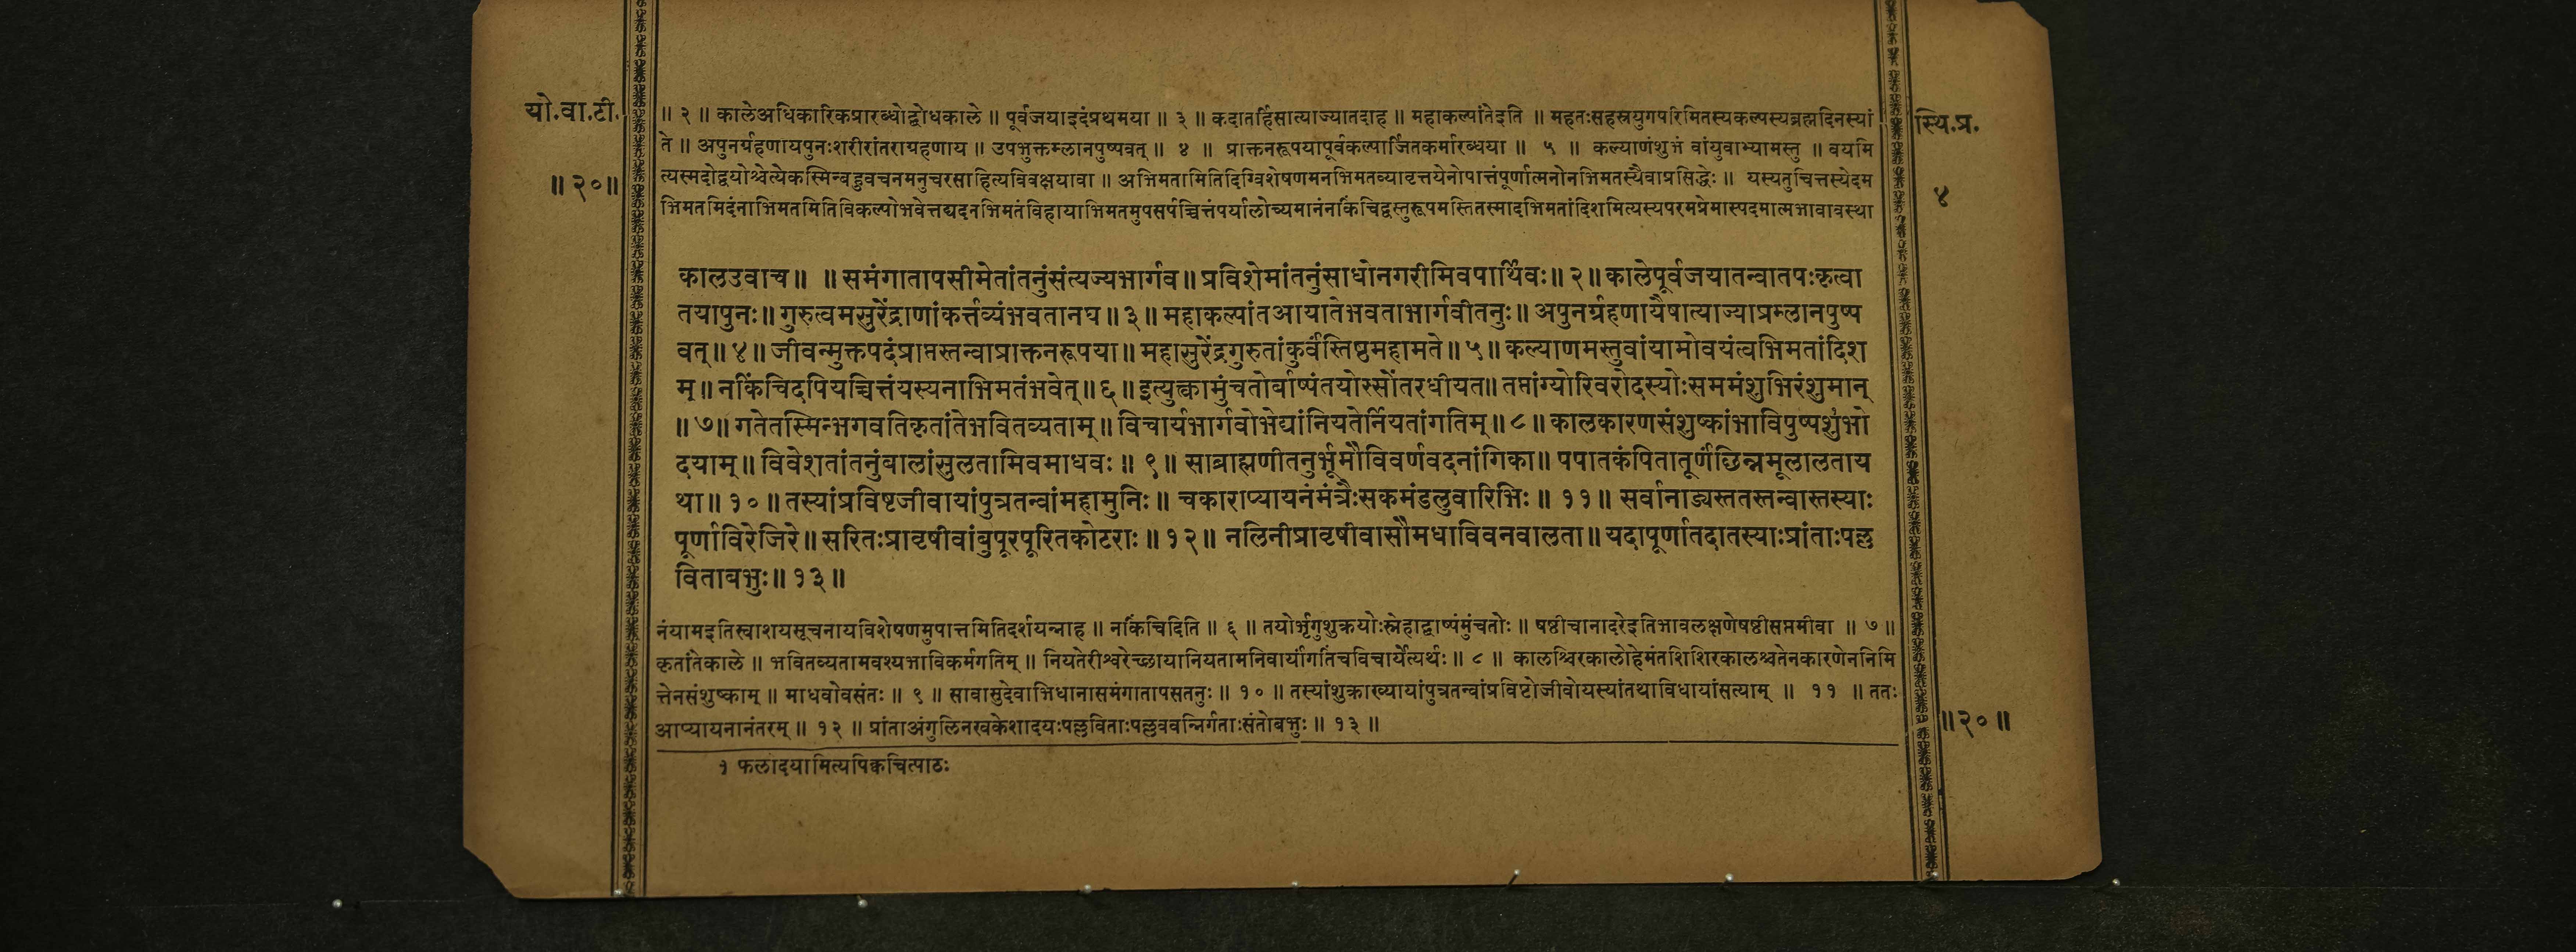 यो.वा.टी.
॥ २० ॥
॥ २ ॥ कालेअधिकारिकप्रारब्धोद्बोधकाले ॥ पूर्वजयाइदंप्रथमया ॥ ३ ॥ कदातर्हिसात्याज्यातदाह ॥ महाकल्पांतेइति ॥ महतःसहस्रयुगपरिमितस्यकल्पस्यब्रह्मदिनस्यां
ते ॥ अपुनर्ग्रहणायपुनःशरीरांतराग्रहणाय ॥ उपभुक्तम्लानपुष्पवत् ॥ ४ ॥ प्राक्तनरूपयापूर्वकल्पार्जितकर्मारब्धया ॥ ५ ॥ कल्याणंशुभं वांयुवाभ्यामस्तु ॥ वयमि
त्यस्मदोद्वयोश्चेत्येकस्मिन्बहुवचनमनुचरसाहित्यविवक्षयावा ॥ अभिमतामितिदिग्विशेषणमनभिमतव्यावृत्तयेनोपात्तंपूर्णात्मनोनभिमतस्यैवाप्रसिद्धेः ॥ यस्यतुचित्तस्येदम
भिमतमिदंनाभिमतमितिविकल्पोभवेत्तद्यदनभिमतंविहायाभिमतमुपसर्पच्चित्तंपर्यालोच्यमानंनकिंचिद्वस्तुरूपमस्तितस्मादभिमतांदिशमित्यस्यपरमप्रेमास्पदमात्मभावावस्था
कालउवाच ॥ ॥ समंगातापसीमेतांतनुंसंत्यज्यभार्गव ॥ प्रविशेमांतनुंसाधोनगरीमिवपार्थिवः ॥ २ ॥ कालेपूर्वजयातन्वातपःकृत्वा
तयापुनः ॥ गुरुत्वमसुरेंद्राणांकर्त्तव्यंभवतानघ ॥ ३ ॥ महाकल्पांतआयातेभवताभार्गवीतनुः ॥ अपुनर्ग्रहणायैषात्याज्याप्रम्लानपुष्प
वत् ॥ ४ ॥ जीवन्मुक्तपदंप्राप्तस्तन्वाप्राक्तनरूपया ॥ महासुरेंद्रगुरुतांकुर्वंस्तिष्ठमहामते ॥ ५ ॥ कल्याणमस्तुवांयामोवयंत्वभिमतांदिश
म् ॥ नकिंचिदपियच्चित्तंयस्यनाभिमतंभवेत् ॥ ६ ॥ इत्युक्त्वामुंचतोर्बाष्पंतयोरसोंतरधीयत ॥ तप्तांग्योरिवरोदस्योःसममंशुभिरंशुमान्
॥ ७ ॥ गतेतस्मिन्भगवतिकृतांतेभवितव्यताम् ॥ विचार्यभार्गवोभेद्यांनियतेर्नियतांगतिम् ॥ ८ ॥ कालकारणसंशुष्कांभाविपुष्पशुभो
दयाम् ॥ विवेशतांतनुंबालांसुलतामिवमाधवः ॥ ९ ॥ साब्राह्मणीतनुर्भूमौविवर्णवदनांगिका ॥ पपातकंपितातूर्णंछिन्नमूलालताय
था ॥ १० ॥ तस्यांप्रविष्टजीवायांपुत्रतन्वांमहामुनिः ॥ चकाराप्यायनंमंत्रैःसकमंडलुवारिभिः ॥ ११ ॥ सर्वानाड्यस्ततस्तन्वास्तस्याः
पूर्णाविरेजिरे ॥ सरितःप्रावृषीवांबुपूरपूरितकोटराः ॥ १२ ॥ नलिनीप्रावृषीवासौमधाविवनवालता ॥ यदापूर्णातदातस्याःप्रांताःपल्ल
विताबभुः ॥ १३ ॥
नंयामइतिस्वाशयसूचनायविशेषणमुपात्तमितिदर्शयन्नाह ॥ नकिंचिदिति ॥ ६ ॥ तयोर्भृगुशुक्रयोःस्नेहाद्बाष्पंमुंचतोः ॥ षष्ठीचानादरेइतिभावलक्षणेषष्ठीसप्तमीवा ॥ ७ ॥
कृतांतेकाले ॥ भवितव्यतामवश्यभाविकर्मगतिम् ॥ नियतेरीश्वरेच्छायानियतामनिवार्यांगतिंचविचार्येत्यर्थः ॥ ८ ॥ कालश्चिरकालोहेमंतशिशिरकालश्चतेनकारणेननिमि
त्तेनसंशुष्काम् ॥ माधवोवसंतः ॥ ९ ॥ सावासुदेवाभिधानासमंगातापसतनुः ॥ १० ॥ तस्यांशुक्राख्यायांपुत्रतन्वांप्रविष्टोजीवोयस्यांतथाविधायांसत्याम् ॥ ११ ॥ ततः
आप्यायनानंतरम् ॥ १२ ॥ प्रांताअंगुलिनखकेशादयःपल्लविताःपल्लववन्निर्गताःसंतोबभुः ॥ १३ ॥
१ फलोदयामित्यपिक्वचित्पाठः
स्थि.प्र.
४
॥ २० ॥